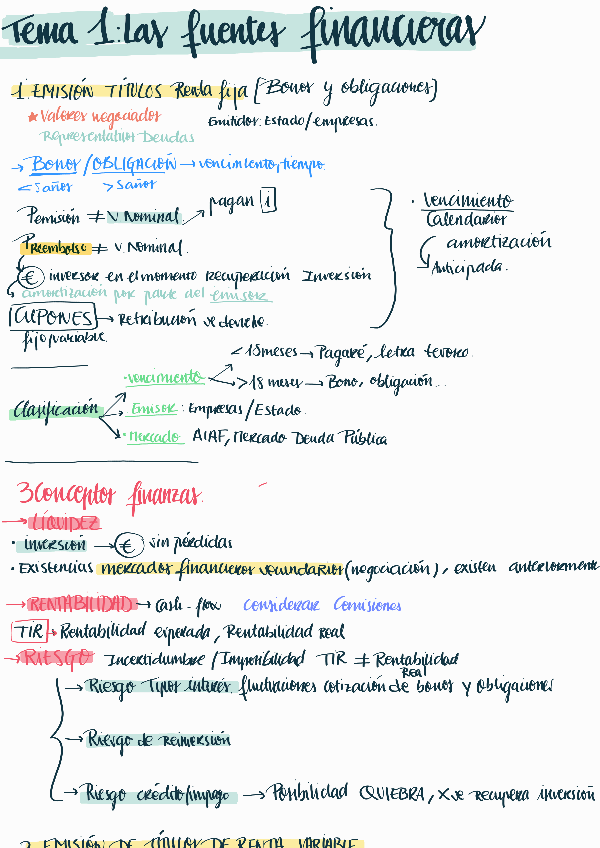 Tema 1: Las fuentes financieras
1. EMISIÓN TÍTULOS Renta fija [Bonos y obligaciones)
* Valores negociados Emitidor: Estado/empresas.
Representativos Deudas
→ BONOS/OBLIGACIÓN → vencimiento, tiempo.
<5años >5años
Pemisión ≠ V. Nominal → pagan i
PReembolso ≠ V. Nominal.
€ inversor en el momento recuperación Inversión
amortización por parte del emisor
CUPONES → Retribución se devenga.
fijo/variable.
· Vencimiento
Calendarios
amortización
→ Anticipada.
Clasificación
· Vencimiento
<18meses → Pagaré, letra tesoro.
>18 meses → Bono, obligación...
· Emisor: Empresas/Estado.
· Mercado AIAF, Mercado Deuda Pública
3 Conceptos finanzas.
→ LÍQUIDEZ
· inversión → € sin pérdidas
· Existencias mercados financieros secundarios (negociación), existen anteriormente
→ RENTABILIDAD → Cash-flow Considerar Comisiones
TIR → Rentabilidad esperada, Rentabilidad real
→ RIESGO Incertidumbre / Imposibilidad TIR ≠ Rentabilidad Real
→ Riesgo Tipos interés: fluctuaciones cotización de bonos y obligaciones
→ Riesgo de reinversión
→ Riesgo crédito/impago → Posibilidad QUIEBRA, X se recupera inversión
2. EMISIÓN DE TÍTULOS DE RENTA VARIABLE